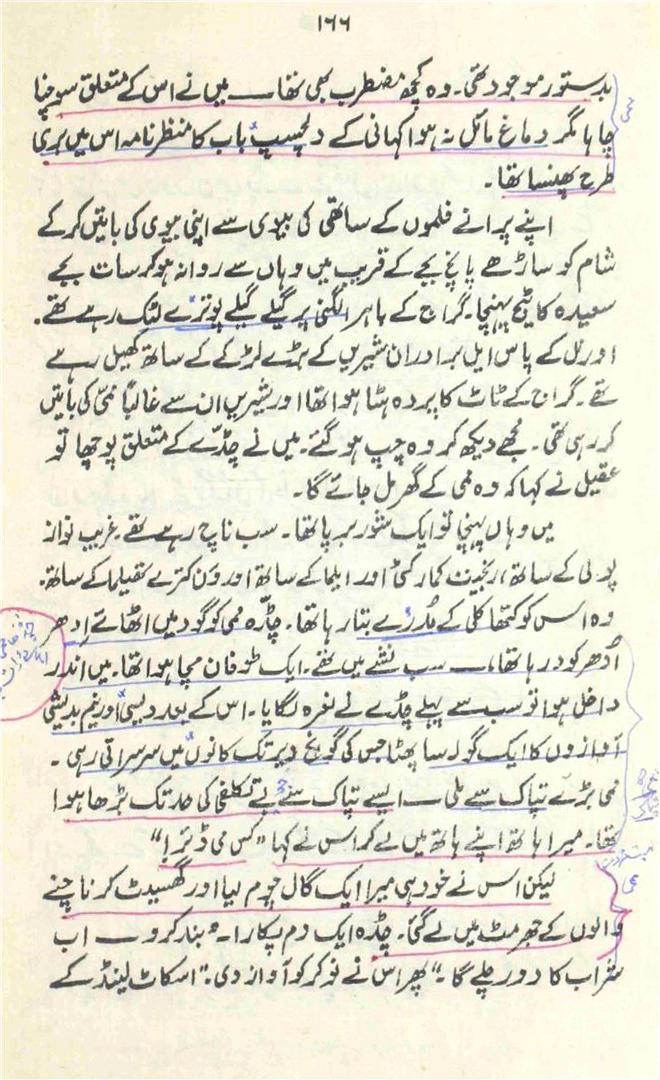 ۱۶۶
بدستور موجود تھی۔ وہ کچھ مضطرب بھی تھا ــــ میں نے اس کے متعلق سوچنا
چاہا مگر دماغ مائل نہ ہوا کہانی کے دلچسپ باب کا منظرنامہ اس میں بری
طرح پھنسا تھا۔
اپنے پرانے فلموں کے ساتھی کی بیوی سے اپنی بیوی کی باتیں کرکے
شام کو ساڑھے پانچ بجے کے قریب میں وہاں سے روانہ ہو کر سات بجے
سعیدہ کاٹیج پہنچا۔ گراج کے باہر الگنی پر گیلے گیلے پوتڑے لٹک رہے تھے۔
اور نل کے پاس ایل برادران شیریں کے بڑے لڑکے کے ساتھ کھیل رہے
تھے۔ گراج کے ٹاٹ کا پردہ ہٹا ہوا تھا اور شیریں ان سے غالباً ممّی کی باتیں
کر رہی تھی۔ مجھے دیکھ کر وہ چپ ہو گئے۔ میں نے چڈّے کے متعلق پوچھا تو
عقیل نے کہا کہ وہ ممی کے گھر مل جائے گا۔
میں وہاں پہنچا تو ایک شور برپا تھا۔ سب ناچ رہے تھے۔ غریب نواز
پولی کے ساتھ، رنجیت کمار کٹی اور ایلما کے ساتھ اور ون کترے تھیلما کے ساتھ۔
وہ اس کو کتھا کلی کے مُدرے بتا رہا تھا۔ چڈّہ ممی کو گود میں اٹھائے اِدھر
اُدھر کود رہا تھا، ــــ سب نشے میں تھے۔ ایک طوفان مچا ہوا تھا۔ میں اندر
داخل ہوا تو سب سے پہلے چڈے نے نعرہ لگایا۔ اس کے بعد دیسی اور نیم بدیشی
آوازوں کا ایک گولہ سا پھٹا جس کی گونج دیر تک کانوں میں سرسراتی رہی۔
ممی بڑے تپاک سے ملی ــــ ایسے تپاک سے جو بے تکلفی کی حد تک بڑھا ہوا
تھا۔ میرا ہاتھ اپنے ہاتھ میں لے کر اس نے کہا ”کس می ڈئر!“
لیکن اس نے خود ہی میرا ایک گال چوم لیا اور گھسیٹ کر ناچنے
والوں کے جھرمٹ میں لے گئی۔ چڈہ ایک دم پکارا۔ ”بند کرو ــــ اب
شراب کا دور چلے گا۔“ پھر اس نے نوکر کو آواز دی۔ ”اسکاٹ لینڈ کے